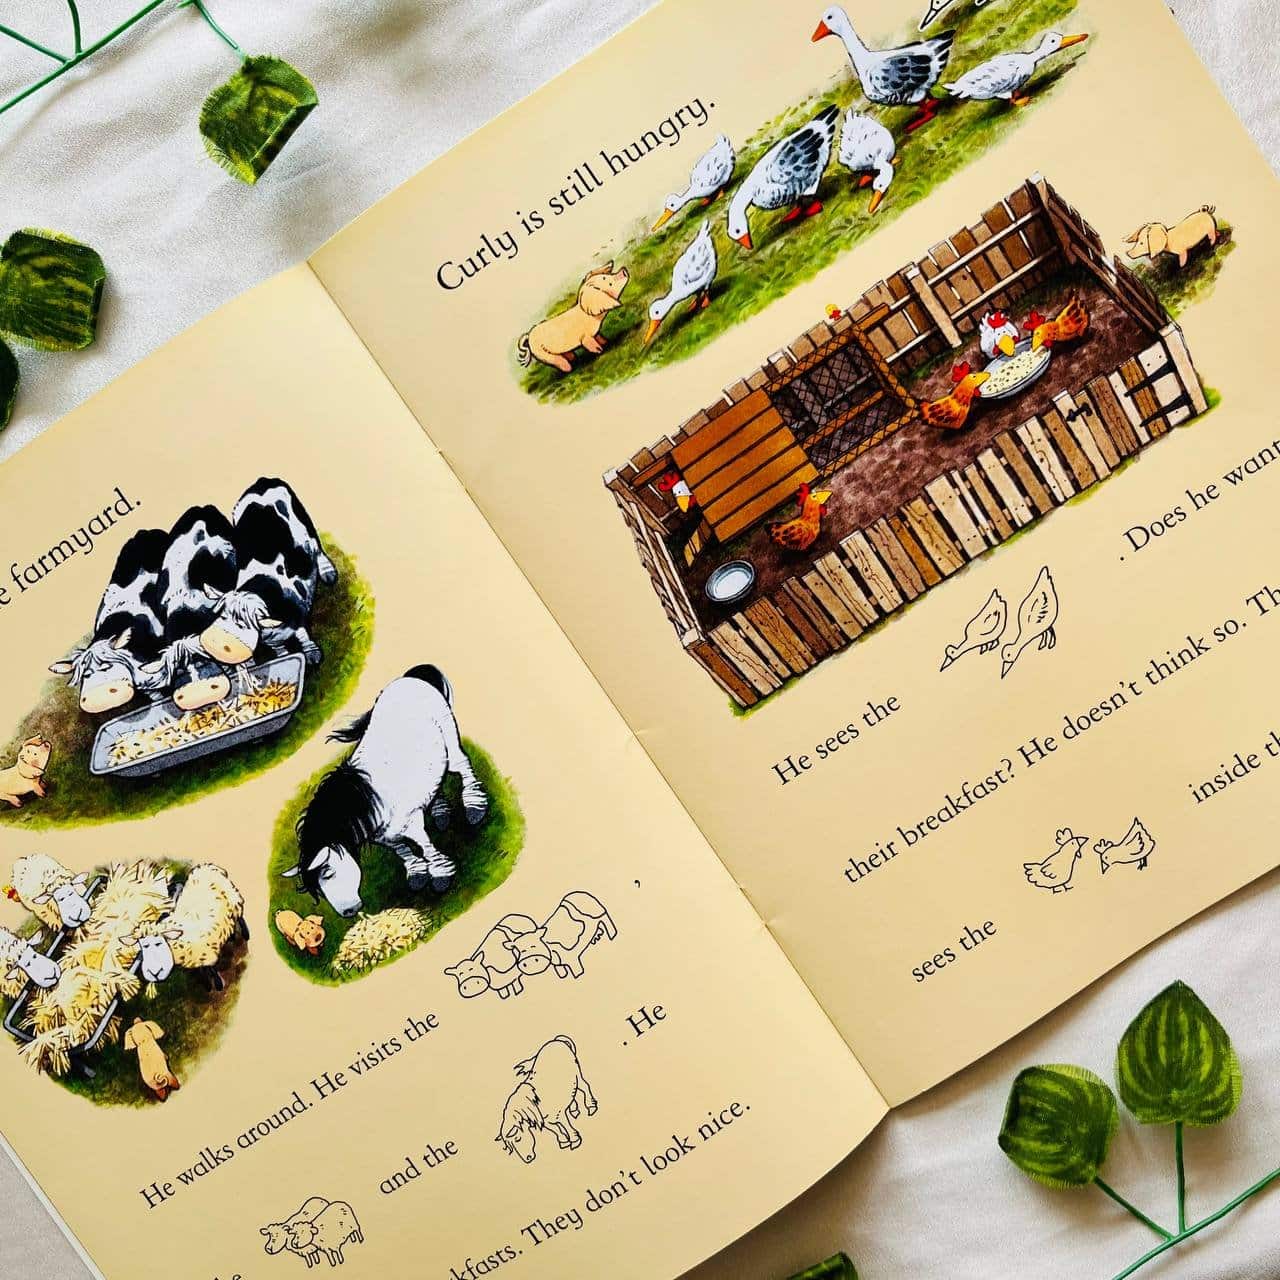 farmyard.
He walks around. He visits the ,
and the . He
They don't look nice.
Curly is still hungry.
He sees the . Does he want
their breakfast? He doesn't think so.
sees the inside